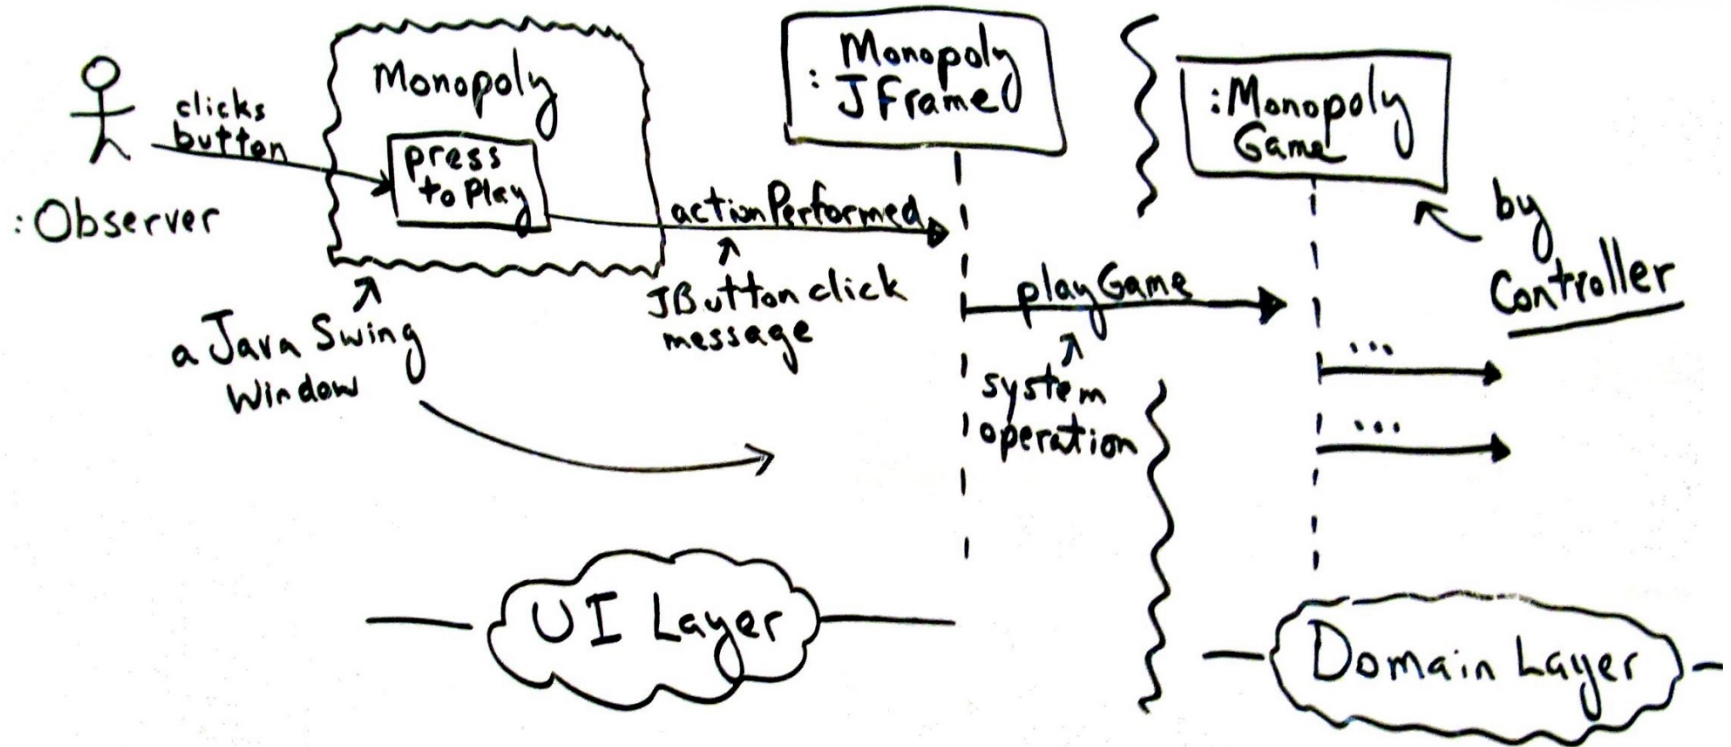 clicks
button
: Observer
Monopoly
press
to Play
a Java Swing
Window
actionPerformed
JButton click
message
Monopoly
: JFrame
playGame
system
operation
:Monopoly
Game
by
Controller
...
...
UI Layer
Domain Layer